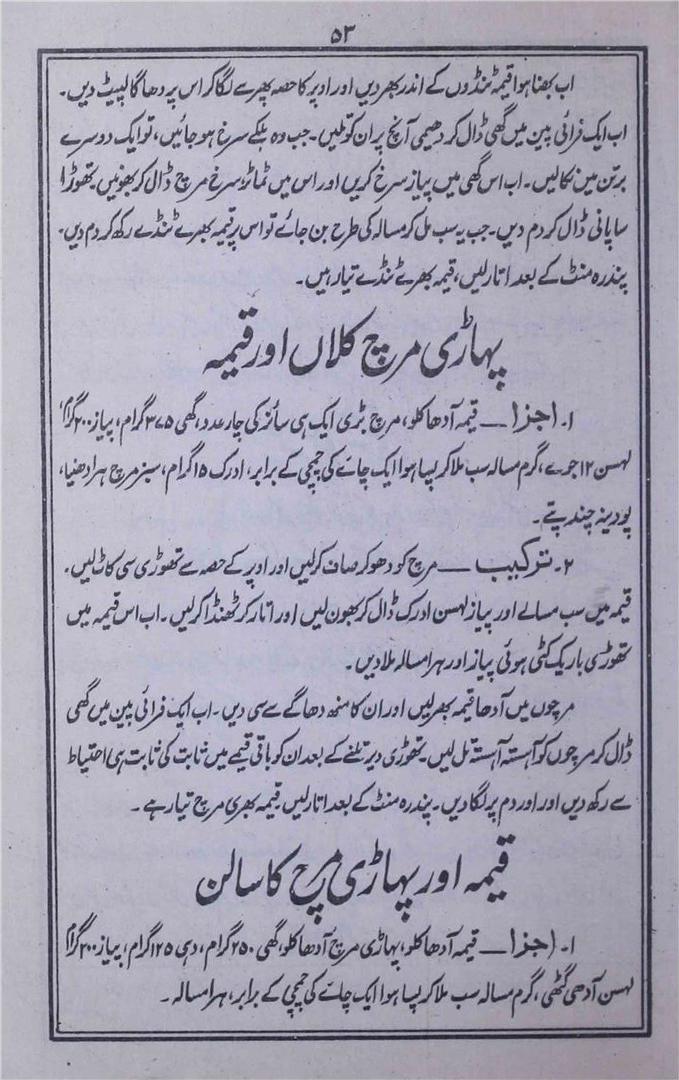 ۵۳
اب بھنا ہوا قیمہ ٹنڈوں کے اندر بھر دیں اور اوپر کا حصہ پھر سے لگا کر اس پر دھاگا لپیٹ دیں۔
اب ایک فرائی پین میں گھی ڈال کر دھیمی آنچ پر ان کو تلیں۔ جب وہ ہلکے سرخ ہو جائیں، تو ایک دوسرے
برتن میں نکالیں۔ اب اس گھی میں پیاز سرخ کریں اور اس میں ٹماٹر، سرخ مرچ ڈال کر بھونیں تھوڑا
سا پانی ڈال کر دم دیں۔ جب یہ سب مل کر مسالہ کی طرح بن جائے تو اس پر قیمہ بھرے ٹنڈے رکھ کر دم دیں۔
پندرہ منٹ کے بعد اتار لیں، قیمہ بھرے ٹنڈے تیار ہیں۔
پہاڑی مرچ کلاں اور قیمہ
۱۔ اجزا — قیمہ آدھا کلو، مرچ بڑی ایک ہی سائز کی چار عدد، گھی ۳۷۵ گرام، پیاز ۲۰۰ گرام،
لہسن ۱۲ جوے، گرم مسالہ سب ملا کر پسا ہوا ایک چائے کی چمچی کے برابر، ادرک ۱۵ گرام، سبز مرچ ہرا دھنیا،
پودینہ چند پتے۔
۲۔ ترکیب — مرچ کو دھو کر صاف کر لیں اور اوپر کے حصہ سے تھوڑی سی کاٹ لیں۔
قیمہ میں سب مسالے اور پیاز لہسن ادرک ڈال کر بھون لیں اور اتار کر ٹھنڈا کر لیں۔ اب اس قیمہ میں
تھوڑی باریک کٹی ہوئی پیاز اور ہرا مسالہ ملا دیں۔
مرچوں میں آدھا قیمہ بھر لیں اور ان کا منھ دھاگے سے سی دیں۔ اب ایک فرائی پین میں گھی
ڈال کر مرچوں کو آہستہ آہستہ تل لیں۔ تھوڑی دیر تلنے کے بعد ان کو باقی قیمے میں ثابت کی ثابت ہی احتیاط
سے رکھ دیں اور اور دم پر لگا دیں۔ پندرہ منٹ کے بعد اتار لیں قیمہ بھری مرچ تیار ہے۔
قیمہ اور پہاڑی مرچ کا سالن
۱۔ اجزا — قیمہ آدھا کلو، پہاڑی مرچ آدھا کلو، گھی ۲۵۰ گرام، دہی ۱۲۵ گرام، پیاز ۲۰۰ گرام
لہسن آدھی گٹھی، گرم مسالہ سب ملا کر پسا ہوا ایک چائے کی چمچی کے برابر، ہرا مسالہ۔